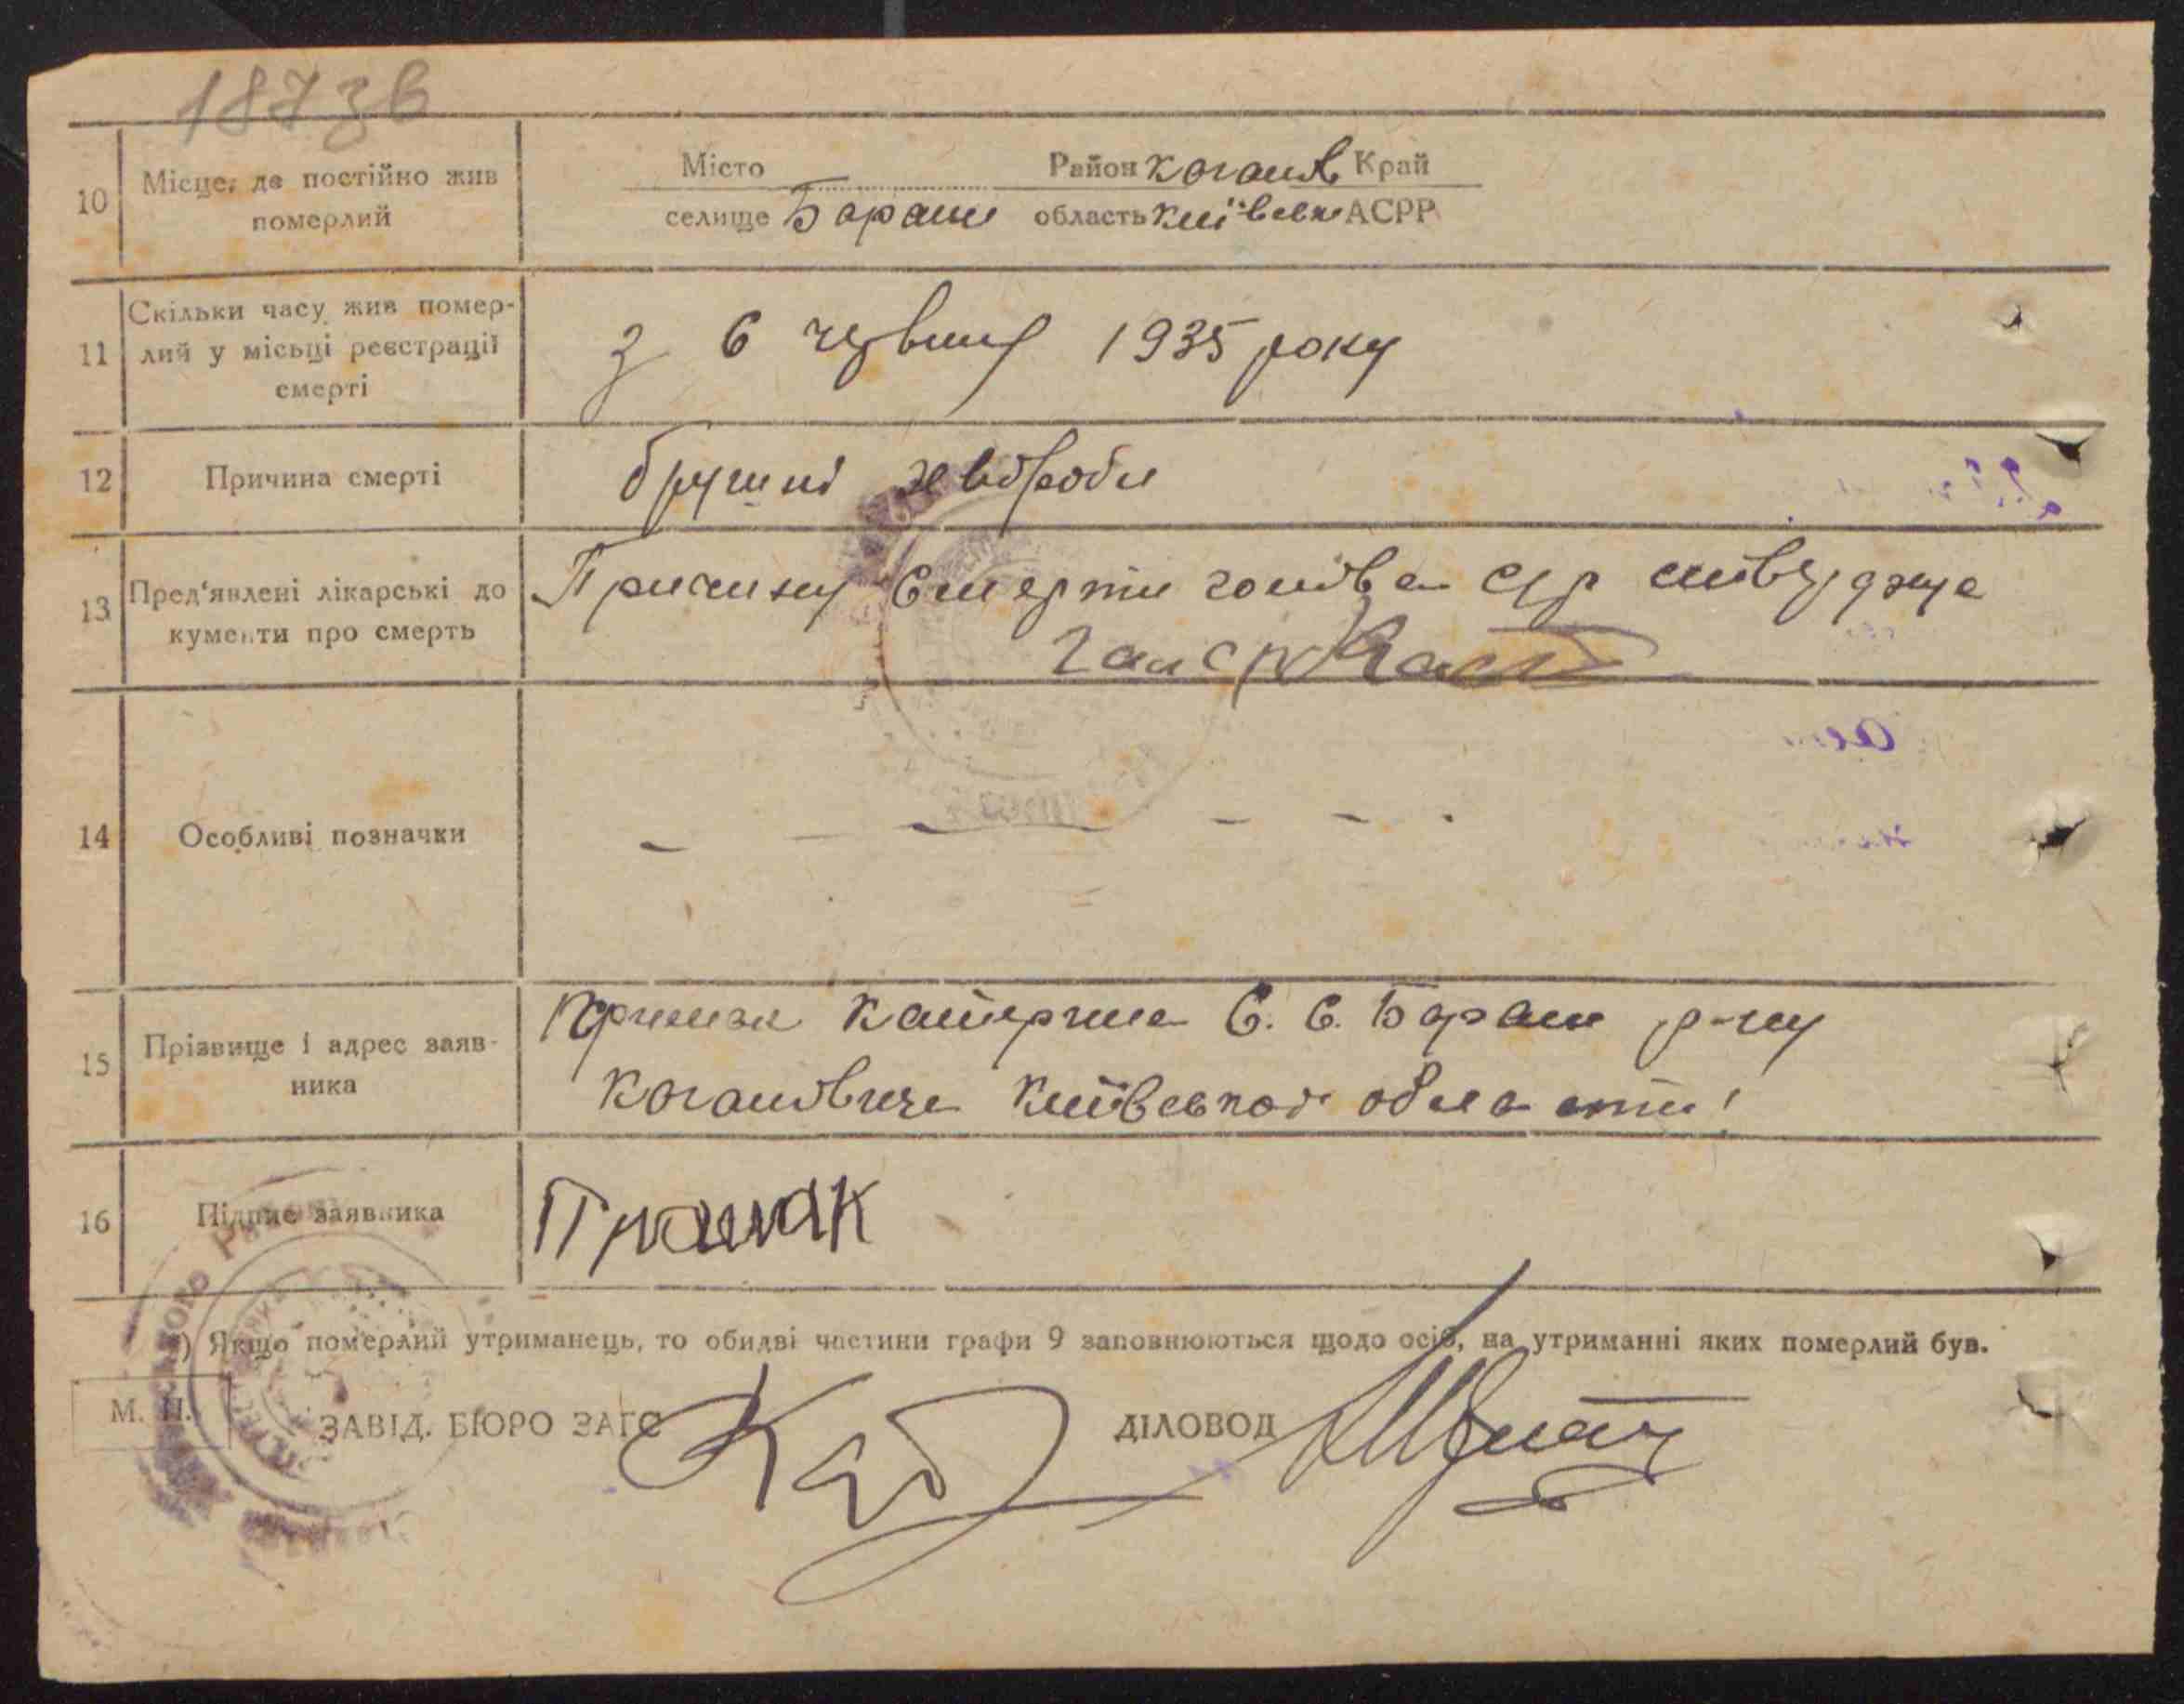 187зв
10 Місце, де постійно жив померлий
Місто Район Коганов Край
селище Бараши область Київськ АСРР
11 Скільки часу жив помер-
лий у місьці реєстрації
смерті
з 6 червня 1935 року
12 Причина смерті
брушні хвороби
13 Пред'явлені лікарські до
кументи про смерть
Причину Смерти голова с/р
14 Особливі позначки
15 Прізвище і адрес заяв-
ника
Катерина С. С. Бараши р-ну
Когановича Київської области
16 Підпис заявника
*) Якщо померлий утриманець, то обидві частини графи 9 заповнюються щодо осіб, на утриманні яких померлий був.
М. П. ЗАВІД. БЮРО ЗАГС ДІЛОВОД